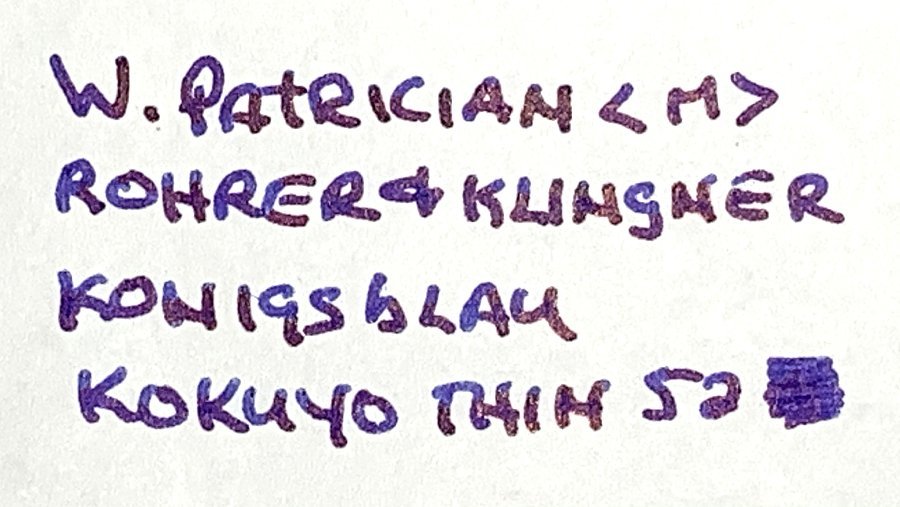 W. PATRICIAN <M>
ROHRER & KLINGNER
KONIGSblAu
KOKUYO THIN 52